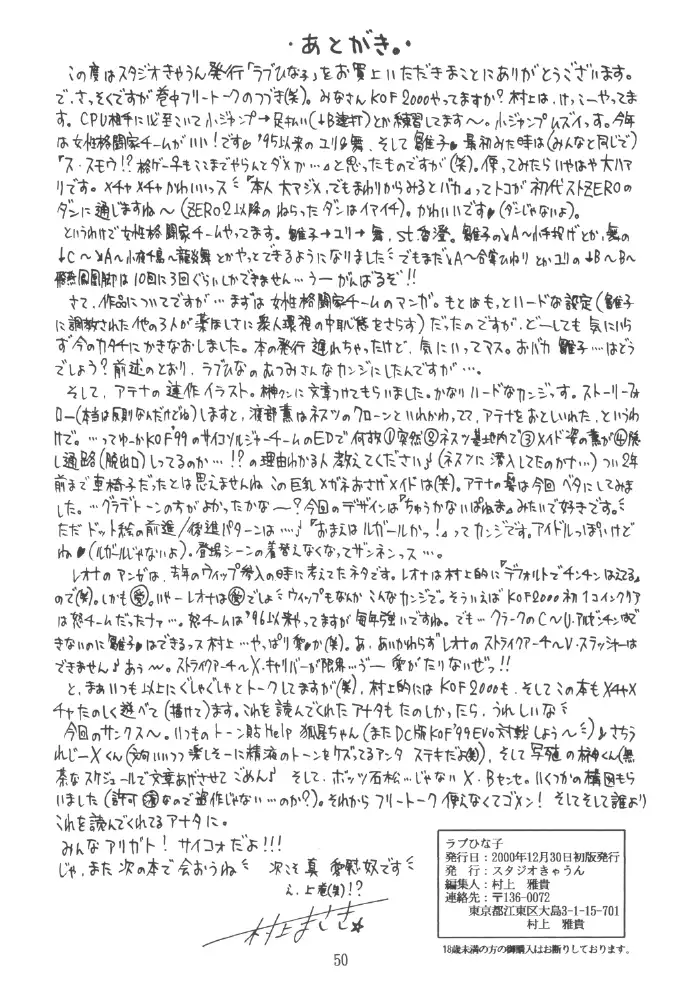 ・あとがき。・
この度はスタジオきゃうん発行「ラブひな子」をお買上いただきまことにありがとうございます。
で、さっそくですが巻中フリートークのつづき(笑)。みなさんKOF2000やってますか?村上は、けっこーやってま
す。CPU相手に小ジャンプ→足払い(↓B連打)とか練習してます〜。小ジャンプムズイっす。今年
は女性格闘家チームがいい!です♥'95以来のユリ&舞、そして雛子♥最初みた時は(みんなと同じで)
『ス・スモウ!?格ゲー子もここまでやらんとダメか…』と思ったものですが(笑)。使ってみたらいやはや大ハア
リです。メチャメチャかわいいっス 『本人大マジメ、でもまわりからみるとバカ』ってトコが初代ストZEROの
ダンに通じますね〜(ZERO2以降のねらったダンはイアイチ)。かわいいです♥(ダンじゃないよ)。
というわけで女性格闘家チームやってます。雛子→ユリ→舞、st.香澄。雛子の↘A〜小手投げとか、舞の
↓C〜↘A〜小夜千鳥〜龍炎舞とかやっとできるようになりました でもまだ↘A〜合掌ひねりとかユリの↓B〜B〜
飛燕鳳凰脚は10回に3回ぐらいしかできません…うーがんばるぞ!!
さて、作品についてですが…まずは女性格闘家チームのマンガ。もとはもっとハードな設定(雛子
に調教された他の3人が薬ほしさに衆人環視の中恥態をさらす)だったのですが、どーしても気にいら
ず今のカタチにかきなおしました。本の発行遅れちゃったけど、気にいってマス。おバカ雛子…はどう
でしょう?前述のとおり、ラブひなのあつみさんなカンジにしたんですが…。
そして、アテナの連作イラスト。榊クンに文章つけてもらいました。かなりハードなカンジっす。ストーリーフォ
ロー(本当は反則なんだけどね)しますと、渡部薫はネスツのクローンといれかわってて、アテナをおといれた、というわ
けで。…ってゆーかKOF'99のサイコソルジャーチームのEDで何故①突然②ネスツ基地内で③メイド姿の薫が④隠
し通路(脱出口)しってるのか…!?の理由わかる人教えてください♪(ネスツに潜入してたのカナ…)つい2年
前まで車椅子だったとは思えませんねこの巨乳メガネおさげメイドは(笑)。アテナの髪は今回ベタにしてみま
した。…グラデトーンの方がよかったかな〜?今回のデザインは『ちゅうかないぱねま』みたいで好きです。
ただドット絵の前進/後進パターンは…♪『おまえはルガールかっ!』ってカンジです。アイドルっぽいけど
ね♥(ルガールじゃないよ)。登場シーンの着替えなくなってザンネンっス…。
レオナのマンガは、去年のウィップ参入の時に考えてたネタです。レオナは村上的に『デフォルトでチンチンはえてる』
ので(笑)。しかも。いやーレオナはでしょ ウィップもなんかこんなカンジで。そういえばKOF2000初1コインクリア
は怒チームだったナァ…。怒チームは'96以来やってますが毎年強いですね。でも…クラークのC〜U.アルゼンチンがで
きないのに雛子♥はできるっス村上…やっぱり愛か(笑)。あ、あいかわらずレオナのストライクアーチ〜V.スラッシャーは
できません♪あぅ〜。ストライクアーチ〜X.キャリバーが限界…う゛ー愛がたりないぜっ!!
と、まぁいつも以上にぐじゃぐじゃとトークしてますが(笑)、村上的にはKOF2000も、そしてこの本もメチャメ
チャたのしく遊べて(描けて)ます。これを読んでくれたアナタもたのしかったら、うれしいな
今回のサンクス〜。いつものトーン貼Help狐馬ちゃん(またDC版KOF'99EVO対戦しよう〜)♪さちう
れじーXくん(文句いいつつ楽しそーに精液のトーンをケズってるアンタステキだよ(笑))、そして写植の榊クん(無
茶なスケジュールで文章あげさせてごめん♪ そして、ボッツ石松…じゃないX・Bセンセ。いくつかの構図もら
いました(許可済なので盗作じゃない…のか?)。それからフリートーク使えなくてゴメン! そしてそして誰より
これを読んでくれてるアナタに。
みんなアリガト! サイコォだよ!!!
じゃ、また次の本で会おうね 次こそ真愛慰奴です
え、上巻(笑)!?
村上まさき
ラブひな子
発行日：2000年12月30日初版発行
発　行：スタジオきゃうん
編集人：村上　雅貴
連絡先：〒136-0072
東京都江東区大島3-1-15-701
村上　雅貴
18歳未満の方の御購入はお断りしております。
50